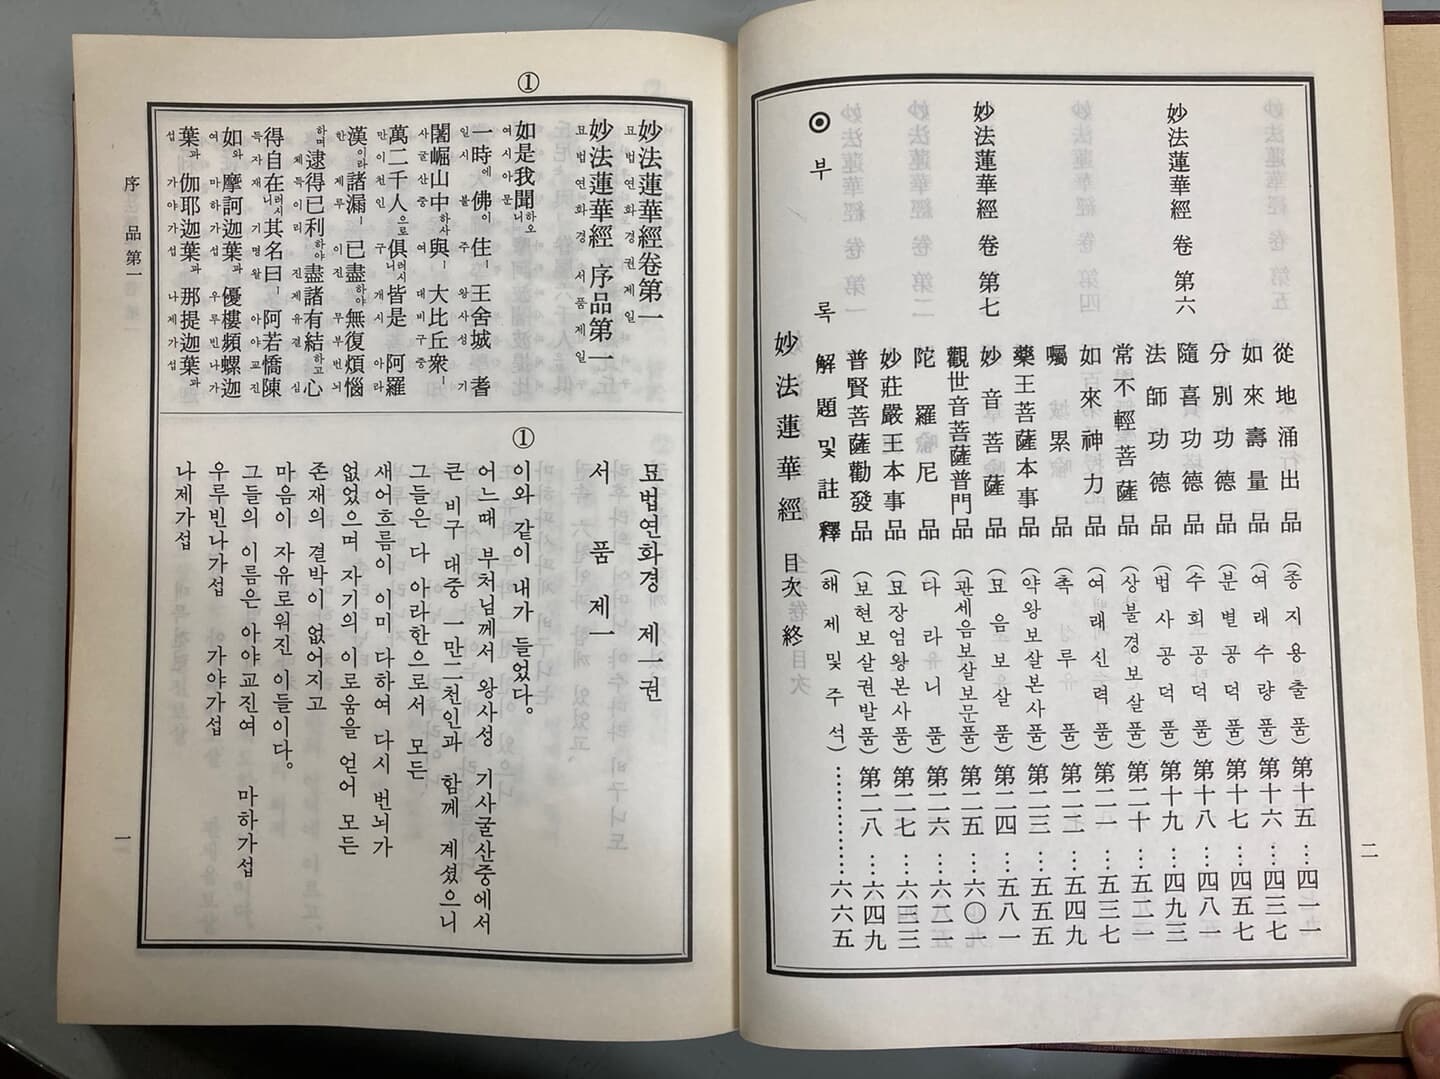 從地涌出品 (종지용출품) 第十五 …四一一
如來壽量品 (여래수량품) 第十六 …四三七
分別功德品 (분별공덕품) 第十七 …四五七
妙法蓮華經 卷 第六
隨喜功德品 (수희공덕품) 第十八 …四八一
法師功德品 (법사공덕품) 第十九 …四九三
常不輕菩薩品 (상불경보살품) 第二十 …五二一
如來神力品 (여래신력품) 第二一 …五三七
囑累品 (촉루품) 第二二 …五四九
藥王菩薩本事品 (약왕보살본사품) 第二三 …五五五
妙法蓮華經 卷 第七
妙音菩薩品 (묘음보살품) 第二四 …五八一
觀世音菩薩普門品 (관세음보살보문품) 第二五 …六〇一
陀羅尼品 (다라니품) 第二六 …六二一
妙莊嚴王本事品 (묘장엄왕본사품) 第二七 …六三三
普賢菩薩勸發品 (보현보살권발품) 第二八 …六四九
◉ 부록 解題 및 註釋 (해제 및 주석) ……………六六五
妙法蓮華經 目次 終
二
妙法蓮華經卷第一
묘법연화경권제일
妙法蓮華經 序品第一
묘법연화경 서품제일
①
如是我聞하오니
여시아문
一時에 佛이 住ㅣ 王舍城 耆
일시 불 주 왕사성 기
闍崛山中하사 與ㅣ 大比丘衆ㅣ
사굴산중 여 대비구중
萬二千人으로 俱러시니 皆是 阿羅
만이천인 구 개시 아라
漢이라 諸漏ㅣ 已盡하야 無復煩惱
한 제루 이진 무부번뇌
하며 逮得己利하야 盡諸有結하고 心
체득이리 진제유결 심
得自在러시니 其名曰ㅣ 阿若憍陳
득자재 기명왈 아야교진
如와 摩訶迦葉과 優樓頻螺迦
여 마하가섭 우루빈나가
葉과 伽耶迦葉과 那提迦葉과
섭 가야가섭 나제가섭
묘법연화경 제一권
서품 제一
①
이와 같이 내가 들었다。
어느때 부처님께서 왕사성 기사굴산중에서
큰 비구 대중 一만二천인과 함께 계셨으니
그들은 다 아라한으로서 모든
새어흐름이 이미 다하여 다시 번뇌가
없었으며 자기의 이로움을 얻어 모든
존재의 결박이 없어지고
마음이 자유로워진 이들이다。
그들의 이름은 아야교진여 마하가섭
우루빈나가섭 가야가섭
나제가섭
序品第一
一